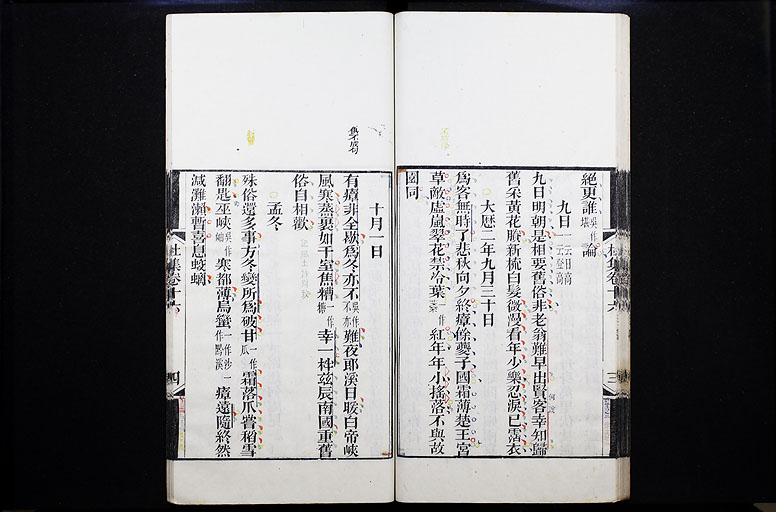 絕更誰吳作堪論
九日一云日高一云登高
九日明朝是相要舊俗非老翁難早出賢客幸知歸
舊采黃花賸新梳白髮微漫看年少樂忍淚已霑衣
大曆二年九月三十日
爲客無時了悲秋向夕終瘴餘夔子國霜薄楚王宮
草敵虛嵐翠花禁冷葉一作
紅年年小搖落不與故
國同
杜集卷十六
三
十月一日
有瘴非全歇爲冬亦不吳作不亦難夜郎溪日暖白帝峽
風寒蒸裹如千室焦糟一作糖幸一柈茲辰南國重舊
俗自相歡
孟冬
殊俗還多事方冬變所爲破甘一作瓜霜落爪嘗稻雪
翻匙巫峽吳作岫寒都薄烏蠻一作沙一作黔溪瘴遠隨終然
減灘瀨暫喜息蛟螭
杜集卷十六
四